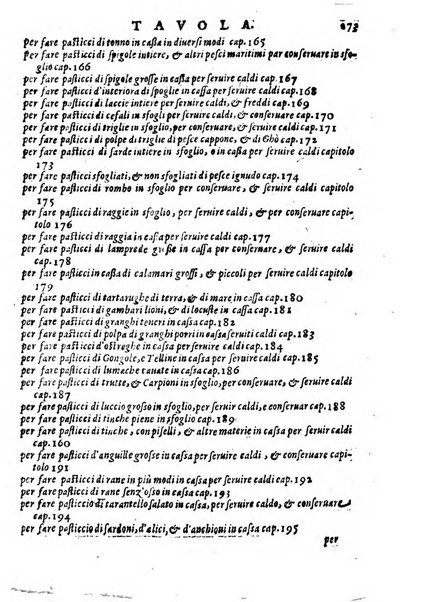 TAVOLA. 673
per fare pasticci di tonno in cassa in diuersi modi cap.165
per fare pasticci di morone, & altri pesci maritimi par conseruare in sfo-
glio cap.166
per fare pasticci di spigole grosse in cassa per seruire caldi cap.167
per fare pasticci d'interiora di spigole in cassa per seruire caldi cap.168
per fare pasticci di laccie intiere per seruire caldi, & freddi cap.169
per fare pasticci di cefali in sfogli per seruire caldi, & conseruare cap.170
per fare pasticci di triglie in sfoglio, per conseruare, & seruire caldi cap.171
per fare pasticci di polpe di triglie di pesce cappone, & di Ghò cap.172
per fare pasticci di sarde intiere in sfoglio, o in cassa per seruire caldi capitolo
173
per fare pasticci sfogliati, & non sfogliati di pesce ignudo cap.174
per fare pasticci di rombo in sfoglio per conseruare, & seruire caldi capitolo
175
per fare pasticci di raggie in sfoglio, per seruire caldi, & per conseruare capi-
tolo 176
per fare pasticci di raggia in cassa per seruire caldi cap.177
per fare pasticci di lamprede grosse in cassa per conseruare, & seruire caldi
cap.178
per fare pasticci in cassa di calamari grossi, & piccoli per seruire caldi capitolo
179
per fare pasticci di tartarughe di terra, & di mare in cassa cap.180
per fare pasticci di gambari lioni, & di locuste in cassa cap.181
per fare pasticci di granghi teneri in cassa cap.182
per fare pasticci di polpa di granghi porri in cassa seruiti caldi cap.183
per fare pasticci in cassa per seruire caldi cap.184
per fare pasticci di Gongole, & Telline in cassa per seruire caldi cap.185
per fare pasticci di lumache cauate in cassa cap.186
per fare pasticci di trutte, & Carpioni in sfoglio, per conseruare, & seruire caldi
cap.187
per fare pasticci di luccio grosso in sfoglio, per seruire caldi, & conseruar cap.188
per fare pasticci di tinche piene in sfoglio cap.189
per fare pasticci di tinche, con piselli, & altre materie in cassa per seruir caldi
cap.160
per fare pasticci d'anguille grosse in cassa per seruire caldi, & conseruare capi-
tolo 191
per fare pasticci di rane in più modi in cassa per seruir caldi cap.192
per fare pasticci di rane senz'osso in cassa cap.193
per fare pasticcio di tarantello salato in cassa per seruir caldo, & conseruare
cap.194
per fare pasticcio di sardoni, d'alici, & d'anchioui in cassa cap.195
per